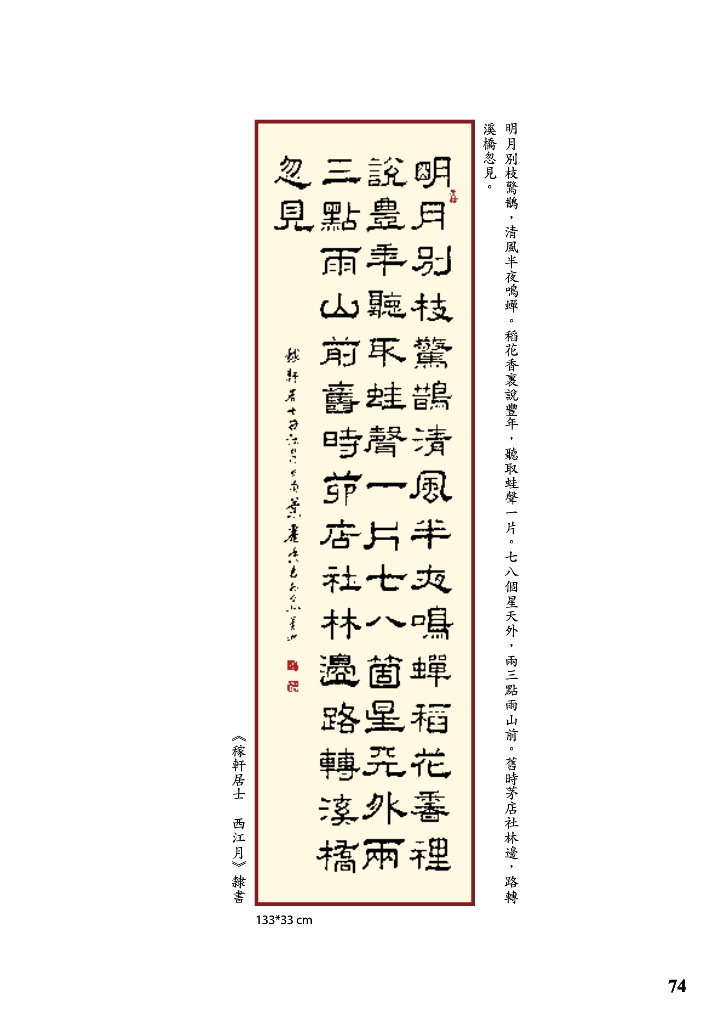 明月別枝驚鵲，清風半夜鳴蟬。稻花香裏說豐年，聽取蛙聲一片。七八個星天外，兩三點雨山前。舊時茅店社林邊，路轉
溪橋忽見。
明月別枝驚鵲清風半夜鳴蟬稻花香裡
說豊年聽取蛙聲一片七八箇星天外兩
三點雨山前舊時茆店社林邊路轉溪橋
忽見
軒居士西江月
《稼軒居士　西江月》隸書
133*33 cm
74